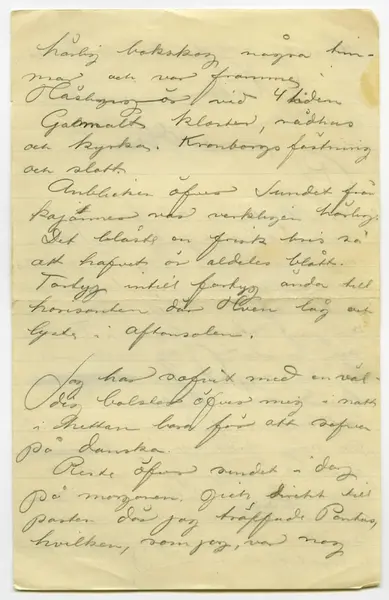 härlig bokskog några tim-
mar och var framme i
Hälsingör vid 4 tiden
Gammalt kloster, rådhus
och kyrka. Kronborgs fästning
och slott.
Anblicken öfver Sundet från
var verkligen härlig.
Det blåste en frisk bris så
att hafvet är alldeles blått.
Fartyg intill fartyg ända till
horisonten där Hven låg och
lyste i aftonsolen.
Jag har sofvit med en väl-
dig bolster öfver mig i natt
i bara för att sofva
på danska.
Reste öfver sundet i dag
på morgonen. Gick direkt till
posten där jag träffade Pontus,
hvilken, som jag, var nog